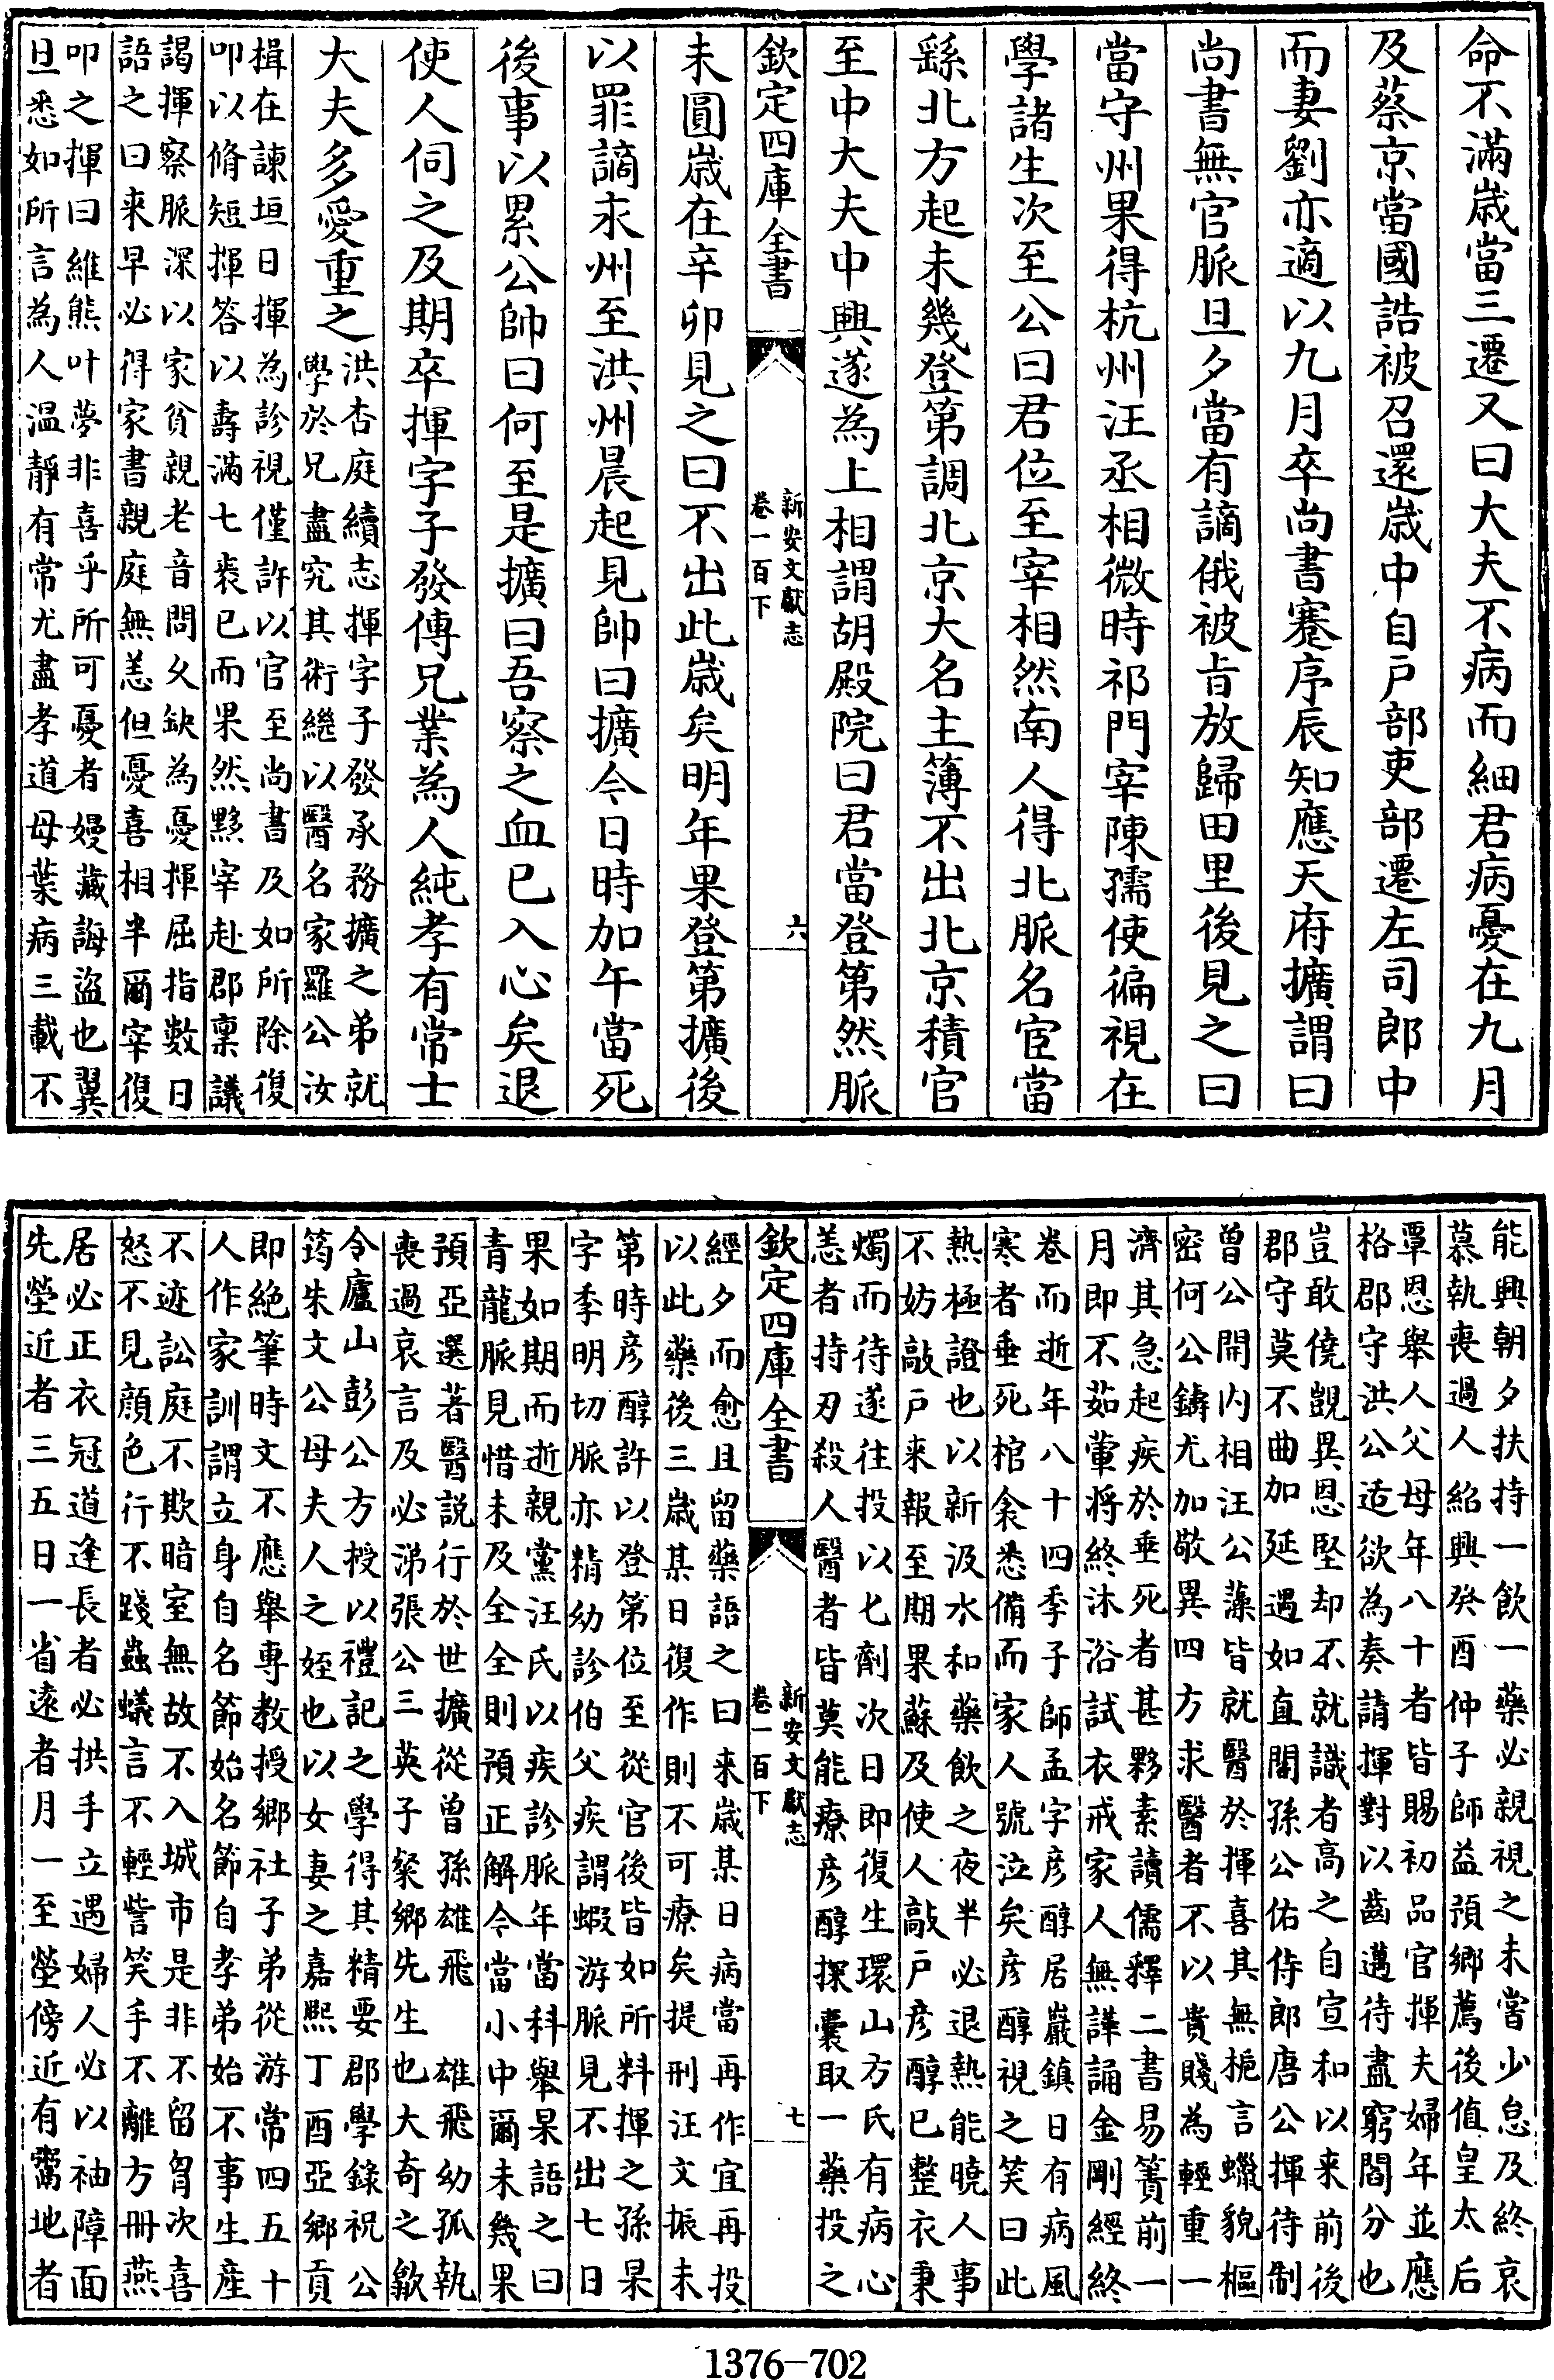 命不滿歲當三遷又曰大夫不病而細君病憂在九月
及蔡京當國誥被召還歲中自戶部吏部遷左司郎中
而妻劉亦適以九月卒尚書蹇序辰知應天府擴謂曰
尚書無官脈旦夕當有謫俄被㫖放歸田里後見之曰
當守州果得杭州汪丞相微時祁門宰陳孺使徧視在
學諸生次至公曰君位至宰相然南人得北脈名宦當
繇北方起未幾登第調北京大名主簿不出北京積官
至中大夫中興遂為上相謂胡殿院曰君當登第然脈
欽定四庫全書
新安文獻志
卷一百下
六
未圓歲在辛卯見之曰不出此歲矣明年果登第擴後
以罪謫永州至洪州晨起見帥曰擴今日時加午當死
後事以累公帥曰何至是擴曰吾察之血已入心矣退
使人伺之及期卒揮字子發傳兄業為人純孝有常士
大夫多愛重之
洪杏庭續志揮字子發承務擴之弟就
學於兄盡究其術繼以醫名家羅公汝
揖在諫垣日揮為診視僅許以官至尚書及如所除復
叩以脩短揮答以壽滿七袠已而果然黟宰赴郡稟議
謁揮察脈深以家貧親老音問久缺為憂揮屈指數日
語之曰来早必得家書親庭無恙但憂喜相半爾宰復
叩之揮曰維熊叶夢非喜乎所可憂者嫚藏誨盜也翼
旦悉如所言為人温靜有常尤盡孝道母葉病三載不
能興朝夕扶持一飲一藥必親視之未嘗少怠及終哀
慕執喪過人紹興癸酉仲子師益預鄉薦後值皇太后
覃恩舉人父母年八十者皆賜初品官揮夫婦年並應
格郡守洪公适欲為奏請揮對以齒邁待盡窮閻分也
豈敢僥覬異恩堅却不就識者高之自宣和以来前後
郡守莫不曲加延遇如直閣孫公佑侍郎唐公揮待制
曾公開内相汪公藻皆就醫於揮喜其無梔言蠟貌樞
密何公鑄尤加敬異四方求醫者不以貴賤為輕重一
濟其急起疾於垂死者甚夥素讀儒釋二書易簀前一
月即不茹葷將終沐浴試衣戒家人無譁誦金剛經終
卷而逝年八十四季子師孟字彦醇居巖鎮日有病風
寒者垂死棺衾悉備而家人號泣矣彦醇視之笑曰此
熱極證也以新汲水和藥飲之夜半必退熱能曉人事
不妨敲户来報至期果蘇及使人敲户彦醇已整衣秉
燭而待遂往投以七劑次日即復生環山方氏有病心
恙者持刃殺人醫者皆莫能療彦醇探囊取一藥投之
欽定四庫全書
新安文獻志
卷一百下
七
經夕而愈且留藥語之曰来歲某日病當再作宜再投
以此藥後三歲其日復作則不可療矣提刑汪文振未
第時彦醇許以登第位至從官後皆如所料揮之孫杲
字季明切脈亦精幼診伯父疾謂蝦游脈見不出七日
果如期而逝親黨汪氏以疾診脈年當科舉杲語之曰
青龍脈見惜未及全全則預正解今當小中爾未幾果
預亞選著醫説行於世擴從曾孫雄飛　雄飛幼孤執
喪過哀言及必涕張公三英子粲鄉先生也大奇之歙
令廬山彭公方授以禮記之學得其精要郡學錄祝公
筠朱文公母夫人之姪也以女妻之嘉熙丁酉亞鄉貢
即絶筆時文不應舉專教授鄉社子弟從游常四五十
人作家訓謂立身自名節始名節自孝弟始不事生産
不迹訟庭不欺暗室無故不入城市是非不留胷次喜
怒不見顔色行不踐蟲蟻言不輕訾笑手不離方冊燕
居必正衣冠道逢長者必拱手立遇婦人必以袖障面
先塋近者三五日一省遠者月一至塋傍近有鬻地者
1376-702